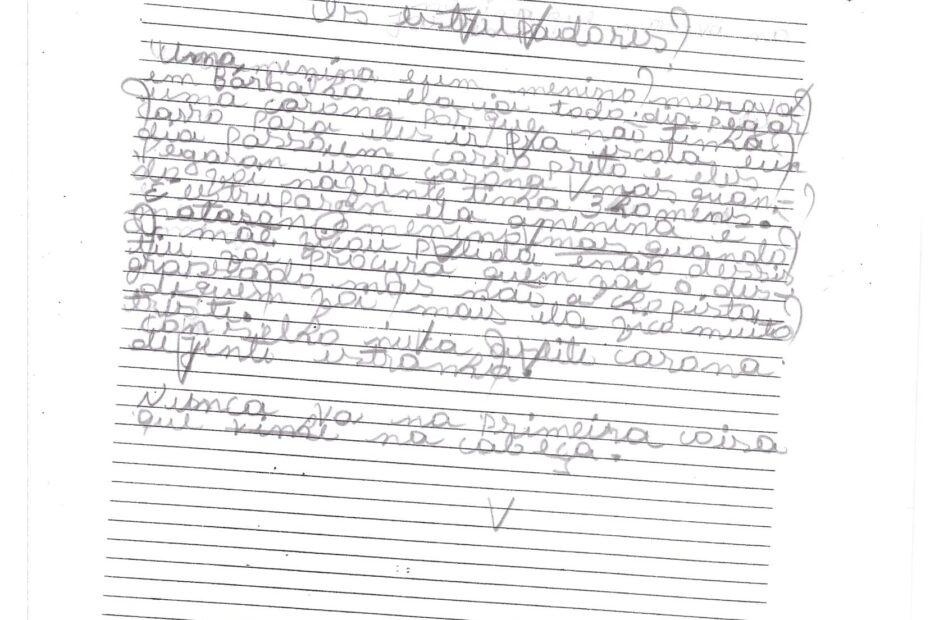 Os estrupadores
Uma menina eum menino morava
em Barbalha ela iai todo dia pegar
uma carona porque não tinha
carro para eles ir pra escola eum
dia passoum carro prito e eles
pegaran uma carona mas quan-
do foi nafrinte tinha 3 homenis.
E estruparam ela amenina e
mataram o menino mas quando
a mãe ficou palida enão desis
tiu foi procura quem foi o des-
grassado mas não a chopista
dequem foi mais ela fico muito
triste.
conselho nuca aseite carona
dejente estranha.
Nunca va na primeira coisa
que vinhe na cabeça.